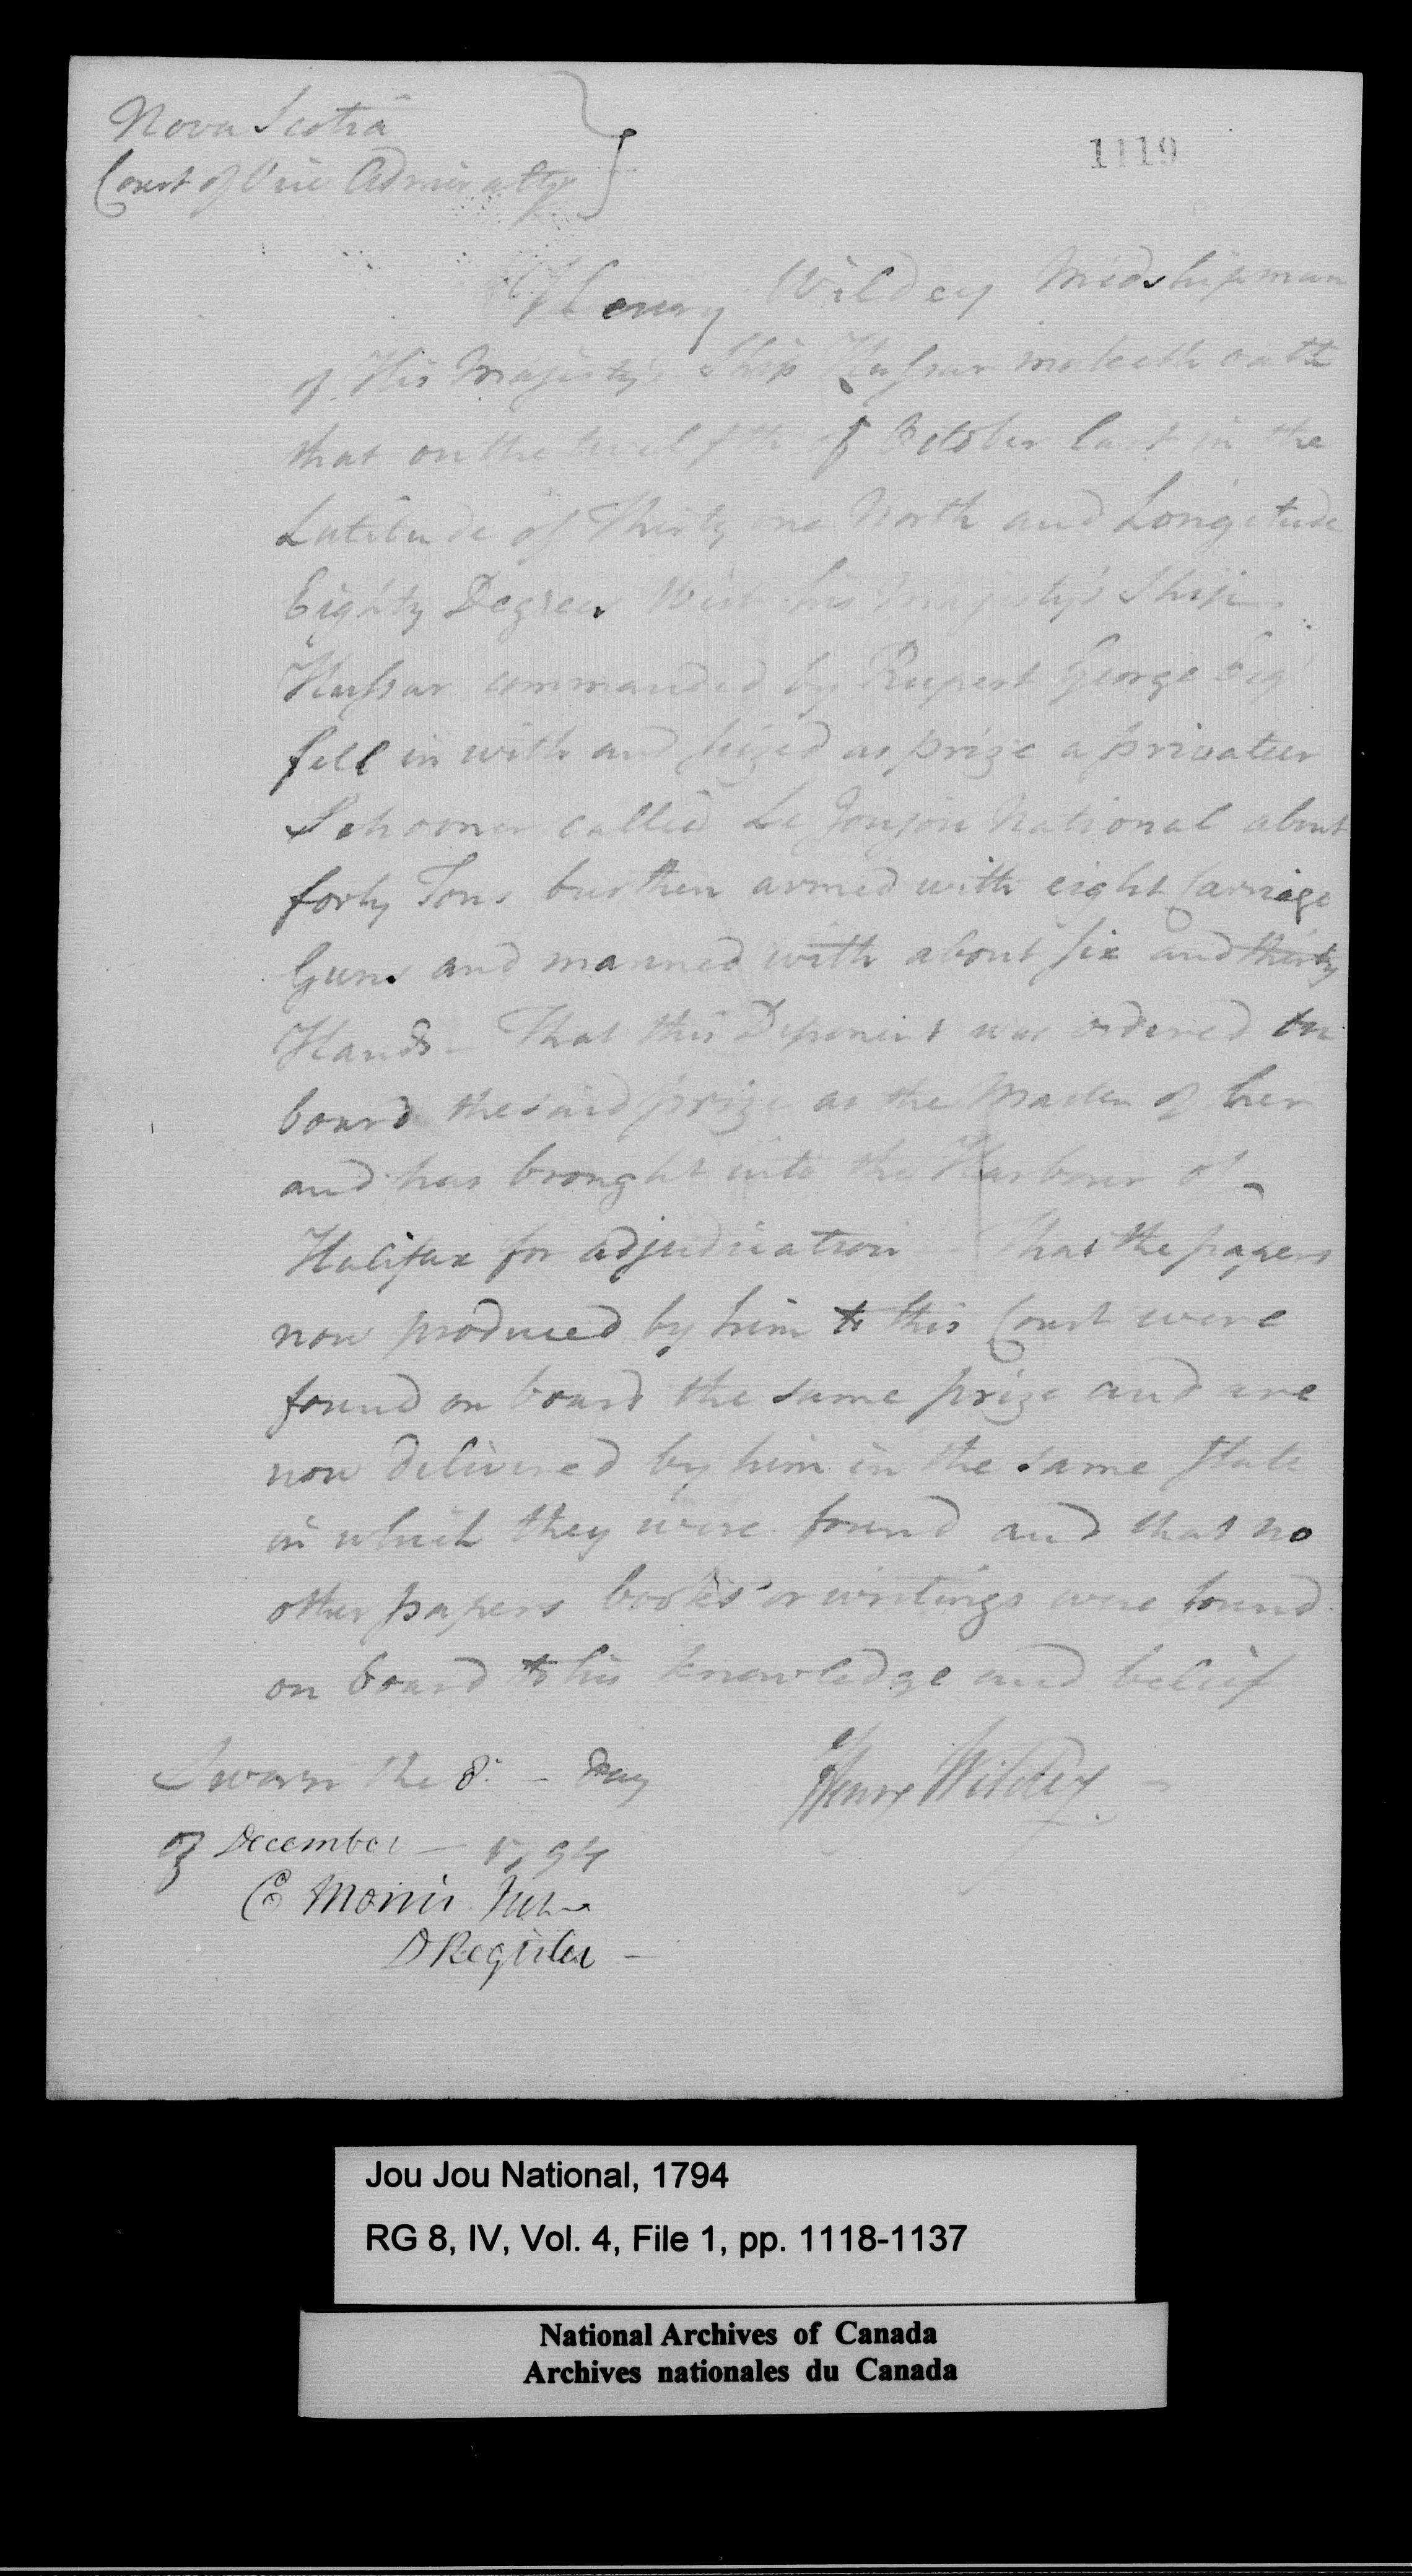 Nova Scotia
Court of Vice Admiralty
1119
Henry Wildey Midshipman
of His Majesty's Ship Hussar maketh oath
that on the twelfth of October last in the
Latitude of Thirty one North and Longitude
Eighty Degrees West his Majesty's Ship
Hussar commanded by Rupert George Esqr
fell in with and seized as prize a privateer
Schooner called Le Joujou National about
forty Tons burthen armed with eight Carriage
Guns and manned with about six and thirty
Hands - That this Deponent was ordered on
board the said prize as the Master of her
and has brought into the Harbour of -
Halifax for adjudication - That the papers
now produced by him to this Court were
found on board the same prize and are
now delivered by him in the same state
in which they were found and that no
other papers books or writings were found
on board to his knowledge and belief
Sworn the 8. - Day
Henry Wildey -
of December - 1794
C Morris Jun
D Register -
Jou Jou National, 1794
RG 8, IV, Vol. 4, File 1, pp. 1118-1137
National Archives of Canada
Archives nationales du Canada